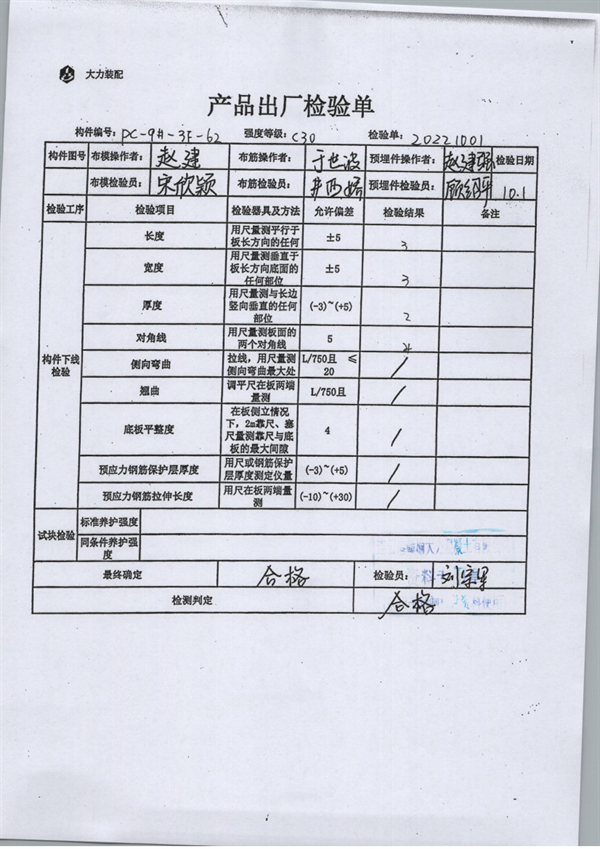 大力装配
产品出厂检验单
构件编号：PC-9#-3F-62 强度等级：C30 检验单：20221001
构件图号 布模操作者：赵建 布筋操作者：于世波 预埋件操作者：赵建强 检验日期
布模检验员：宋欣颖 布筋检验员： 预埋件检验员： 10.1
检验工序 检验项目 检验器具及方法 允许偏差 检验结果 备注
构件下线检验
长度 用尺量测平行于板长方向的任何 ±5 3
宽度 用尺量测垂直于板长方向底面的任何部位 ±5 3
厚度 用尺量测与长边竖向垂直的任何部位 (-3)~(+5) 2
对角线 用尺量测板面的两个对角线 5
侧向弯曲 拉线，用尺量测侧向弯曲最大处 L/750且 ≤20 /
翘曲 调平尺在板两端量测 L/750且 /
底板平整度 在板侧立情况下，2m靠尺、塞尺量测靠尺与底板的最大间隙 4 /
预应力钢筋保护层厚度 用尺或钢筋保护层厚度测定仪量 (-3)~(+5) /
预应力钢筋拉伸长度 用尺在板两端量测 (-10)~(+30) /
试块检验 标准养护强度
同条件养护强度
最终确定 合格 检验员：
检测判定 合格